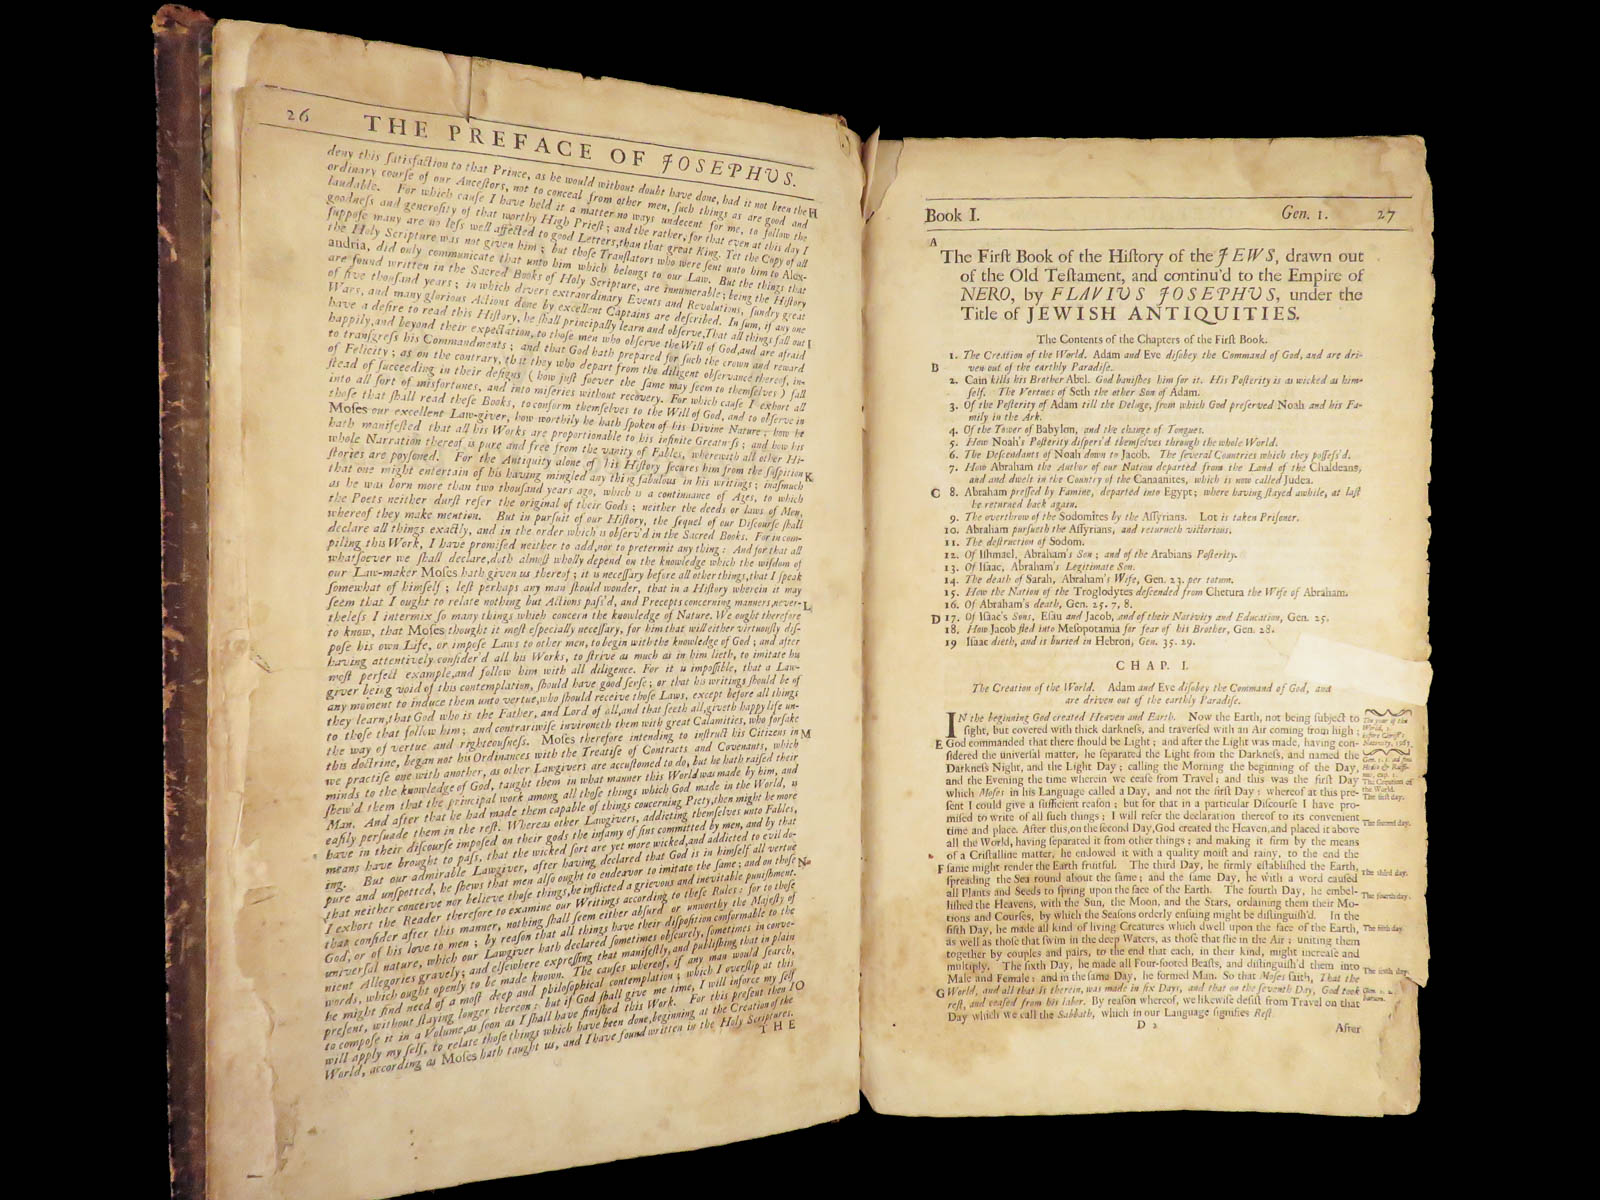 26 THE PREFACE OF JOSEPHUS.
deny this ſatisfaction to that Prince, as he would without doubt have done, had it not been the H
ordinary courſe of our Anceſtors, not to conceal from other men, ſuch things as are good and
laudable. For which cauſe I have held it a matter no ways undecent for me, to follow the
goodneſs and generoſity of that worthy High Prieſt; and the rather, for that even at this day I
ſuppoſe many are no leſs well affected to good Letters, than that great King. Yet the Copy of all
the Holy Scripture was not given him; but thoſe Tranſlators who were ſent unto him to Alex-
andria, did only communicate that unto him which belongs to our Law. But the things that
are found written in the Sacred Books of Holy Scripture, are innumerable; being the Hiſtory
of five thouſand years; in which divers extraordinary Events and Revolutions, ſundry great
Wars, and many glorious Actions done by excellent Captains are deſcribed. In ſum, if any one
have a deſire to read this Hiſtory, he ſhall principally learn and obſerve, That all things fall out I
happily, and beyond their expectation, to thoſe men who obſerve the Will of God, and are afraid
to tranſgreſs his Commandments; and that God hath prepared for ſuch the crown and reward
of Felicity; as on the contrary, that they who depart from the diligent obſervance thereof, in-
ſtead of ſucceeding in their deſigns (how juſt ſoever the ſame may ſeem to themſelves) fall
into all ſort of misfortunes, and into miſeries without recovery. For which cauſe I exhort all
thoſe that ſhall read theſe Books, to conform themſelves to the Will of God, and to obſerve in
Moſes our excellent Law-giver, how worthily he hath ſpoken of his Divine Nature; how he
hath manifeſted that all his Works are proportionable to his infinite Greatneſs; and how his
whole Narration thereof is pure and free from the vanity of Fables, wherewith all other Hi-
ſtories are poyſoned. For the Antiquity alone of his Hiſtory ſecures him from the ſuſpition K
that one might entertain of his having mingled any thing fabulous in his writings; inaſmuch
as he was born more than two thouſand years ago, which is a continuance of Ages, to which
the Poets neither durſt refer the original of their Gods; neither the deeds or laws of Men,
whereof they make mention. But in purſuit of our Hiſtory, the ſequel of our Diſcourſe ſhall
declare all things exactly, and in the order which is obſerv'd in the Sacred Books. For in com-
piling this Work, I have promiſed neither to add, nor to pretermit any thing: And for that all
whatſoever we ſhall declare, doth almoſt wholly depend on the knowledge which the wiſdom of
our Law-maker Moſes hath given us thereof; it is neceſſary before all other things, that I ſpeak
ſomewhat of himſelf; leſt perhaps any man ſhould wonder, that in a Hiſtory wherein it may
ſeem that I ought to relate nothing but Actions paſs'd, and Precepts concerning manners, never- L
theleſs I intermix ſo many things which concern the knowledge of Nature. We ought therefore
to know, that Moſes thought it moſt eſpecially neceſſary, for him that will either virtuouſly diſ-
poſe his own Life, or impoſe Laws to other men, to begin with the knowledge of God; and after
having attentively conſider'd all his Works, to ſtrive as much as in him lieth, to imitate his
moſt perfect example, and follow him with all diligence. For it is impoſſible, that a Law-
giver being void of this contemplation, ſhould have good ſenſe; or that his writings ſhould be of
any moment to induce them unto vertue, who ſhould receive thoſe Laws, except before all things
they learn, that God who is the Father, and Lord of all, and that ſeeth all, giveth happy life un-
to thoſe that follow him; and contrariwiſe invironeth them with great Calamities, who forſake
the way of vertue and righteouſneſs. Moſes therefore intending to inſtruct his Citizens in M
this doctrine, began not his Ordinances with the Treatiſe of Contracts and Covenants, which
we practiſe one with another, as other Lawgivers are accuſtomed to do, but he hath raiſed their
minds to the knowledge of God, taught them in what manner this World was made by him, and
ſhew'd them that the principal work among all thoſe things which God made in the World, is
Man. And after that he had made them capable of things concerning Piety, then might he more
eaſily perſuade them in the reſt. Whereas other Lawgivers, addicting themſelves unto Fables,
have in their diſcourſe impoſed on their gods the infamy of ſins committed by men, and by that
means have brought to paſs, that the wicked ſort are yet more wicked, and addicted to evil do-
ing. But our admirable Lawgiver, after having declared that God is in himſelf all vertue
pure and unſpotted, he ſhews that men alſo ought to endeavor to imitate the ſame; and on thoſe N
that neither conceive nor believe thoſe things, he inflicted a grievous and inevitable puniſhment.
I exhort the Reader therefore to examine our Writings according to theſe Rules: for to thoſe
that conſider after this manner, nothing ſhall ſeem either abſurd or unworthy the Majeſty of
God, or of his love to men; by reaſon that all things have their diſpoſition conformable to the
univerſal nature, which our Lawgiver hath declared ſometimes obſcurely, ſometimes in conve-
nient Allegories gravely; and elſewhere expreſſing that manifeſtly, and publiſhing that in plain
words, which ought openly to be made known. The cauſes whereof, if any man would ſearch,
he might find need of a moſt deep and philoſophical contemplation; which I overſlip at this
preſent, without ſtaying longer thereon; but if God ſhall give me time, I will inforce my ſelf
to compoſe it in a Volume, as ſoon as I ſhall have finiſhed this Work. For this preſent then I O
will apply my ſelf, to relate thoſe things which have been done, beginning at the Creation of the
World, according as Moſes hath taught us, and I have found written in the Holy Scriptures.
THE
Book I. Gen. 1. 27
A
The Firſt Book of the Hiſtory of the JEWS, drawn out
of the Old Teſtament, and continu'd to the Empire of
NERO, by FLAVIUS JOSEPHUS, under the
Title of JEWISH ANTIQUITIES.
The Contents of the Chapters of the Firſt Book.
1. The Creation of the World. Adam and Eve diſobey the Command of God, and are dri-
B ven out of the earthly Paradiſe.
2. Cain kills his Brother Abel. God baniſhes him for it. His Poſterity is as wicked as him-
ſelf. The Vertues of Seth the other Son of Adam.
3. Of the Poſterity of Adam till the Deluge, from which God preſerved Noah and his Fa-
mily in the Ark.
4. Of the Tower of Babylon, and the change of Tongues.
5. How Noah's Poſterity diſpers'd themſelves through the whole World.
6. The Deſcendants of Noah down to Jacob. The ſeveral Countries which they poſſeſs'd.
7. How Abraham the Author of our Nation departed from the Land of the Chaldeans,
and and dwelt in the Country of the Canaanites, which is now called Judea.
C 8. Abraham preſſed by Famine, departed into Egypt; where having ſtayed awhile, at laſt
he returned back again.
9. The overthrow of the Sodomites by the Aſſyrians. Lot is taken Priſoner.
10. Abraham purſueth the Aſſyrians, and returneth victorious.
11. The deſtruction of Sodom.
12. Of Iſhmael, Abraham's Son; and of the Arabians Poſterity.
13. Of Iſaac, Abraham's Legitimate Son.
14. The death of Sarah, Abraham's Wife, Gen. 23. per totum.
15. How the Nation of the Troglodytes deſcended from Chetura the Wife of Abraham.
16. Of Abraham's death, Gen. 25. 7, 8.
D 17. Of Iſaac's Sons, Eſau and Jacob, and of their Nativity and Education, Gen. 25.
18. How Jacob fled into Meſopotamia for fear of his Brother, Gen. 28.
19 Iſaac dieth, and is buried in Hebron, Gen. 35. 29.
CHAP. I.
The Creation of the World. Adam and Eve diſobey the Command of God, and
are driven out of the earthly Paradiſe.
IN the beginning God created Heaven and Earth. Now the Earth, not being ſubject to
ſight, but covered with thick darkneſs, and traverſed with an Air coming from high;
E God commanded that there ſhould be Light; and after the Light was made, having con-
ſidered the univerſal matter, he ſeparated the Light from the Darkneſs, and named the
Darkneſs Night, and the Light Day; calling the Morning the beginning of the Day,
and the Evening the time wherein we ceaſe from Travel; and this was the firſt Day
which Moſes in his Language called a Day, and not the firſt Day: whereof at this pre-
ſent I could give a ſufficient reaſon; but for that in a particular Diſcourſe I have pro-
miſed to write of all ſuch things; I will refer the declaration thereof to its convenient
time and place. After this, on the ſecond Day, God created the Heaven, and placed it above
all the World, having ſeparated it from other things; and making it firm by the means
of a Criſtalline matter, he endowed it with a quality moiſt and rainy, to the end the
F ſame might render the Earth fruitful. The third Day, he firmly eſtabliſhed the Earth,
ſpreading the Sea round about the ſame; and the ſame Day, he with a word cauſed
all Plants and Seeds to ſpring upon the face of the Earth. The fourth Day, he embel-
liſhed the Heavens, with the Sun, the Moon, and the Stars, ordaining them their Mo-
tions and Courſes, by which the Seaſons orderly enſuing might be diſtinguiſh'd. In the
fifth Day, he made all kind of living Creatures which dwell upon the face of the Earth,
as well as thoſe that ſwim in the deep Waters, as thoſe that flie in the Air; uniting them
together by couples and pairs, to the end that each, in their kind, might increaſe and
multiply. The ſixth Day, he made all Four-footed Beaſts, and diſtinguiſh'd them into
Male and Female: and in the ſame Day, he formed Man. So that Moſes ſaith, That the
G World, and all that is therein, was made in ſix Days, and that on the ſeventh Day, God took
reſt, and ceaſed from his labor. By reaſon whereof, we likewiſe deſiſt from Travel on that
Day which we call the Sabbath, which in our Language ſignifies Reſt
D 2 After
The year of the
World, 1.
before Chriſt's
Nativity,
Gen. 1. 1.
The Creation of
the World.
The firſt day.
The ſecond day.
The third day.
The fourth day.
The fifth day.
The ſixth day.
Gen. 2. 2.